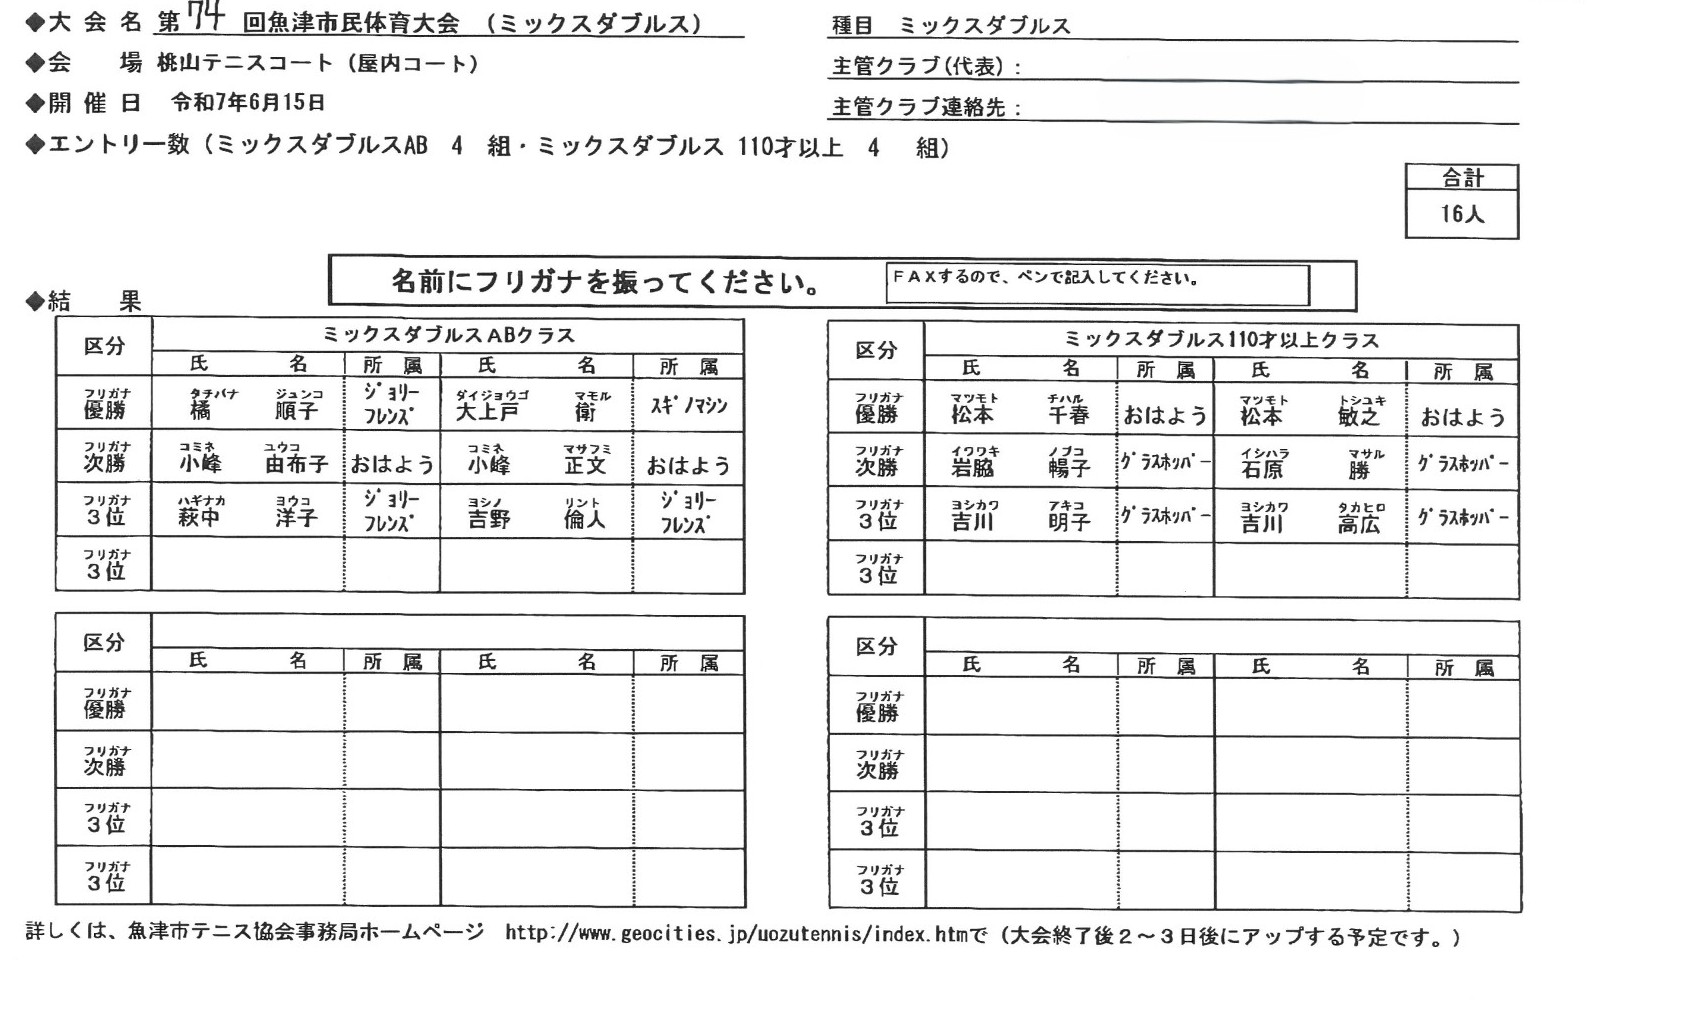 ◆大 会 名 第 74 回魚津市民体育大会 (ミックスダブルス)
種目 ミックスダブルス
◆会 場 桃山テニスコート (屋内コート)
主管クラブ(代表):
◆開 催 日 令和7年6月15日
主管クラブ連絡先:
◆エントリー数 (ミックスダブルスAB 4 組・ミックスダブルス 110才以上 4 組)
合計
16人
名前にフリガナを振ってください。
FAXするので、ペンで記入してください。
◆結 果
区分 ミックスダブルスABクラス
氏 名 所 属 氏 名 所 属
フリガナ タチバナ ジュンコ ジョリー ダイジョウゴ マモル
優勝 橘 順子 フレンズ 大上戸 衛 スギノマシン
フリガナ コミネ ユウコ コミネ マサフミ
次勝 小峰 由布子 おはよう 小峰 正文 おはよう
フリガナ ハギナカ ヨウコ ジョリー ヨシノ リント ジョリー
3位 萩中 洋子 フレンズ 吉野 倫人 フレンズ
フリガナ
3位
区分 ミックスダブルス110才以上クラス
氏 名 所 属 氏 名 所 属
フリガナ マツモト チハル マツモト トシユキ
優勝 松本 千春 おはよう 松本 敏之 おはよう
フリガナ イワワキ ノブコ イシハラ マサル
次勝 岩脇 暢子 グラスホッパー 石原 勝 グラスホッパー
フリガナ ヨシカワ アキコ ヨシカワ タカヒロ
3位 吉川 明子 グラスホッパー 吉川 高広 グラスホッパー
フリガナ
3位
区分
氏 名 所 属 氏 名 所 属
フリガナ
優勝
フリガナ
次勝
フリガナ
3位
フリガナ
3位
区分
氏 名 所 属 氏 名 所 属
フリガナ
優勝
フリガナ
次勝
フリガナ
3位
フリガナ
3位
詳しくは、魚津市テニス協会事務局ホームページ http://www.geocities.jp/uozutennis/index.htmで (大会終了後2～3日後にアップする予定です。)